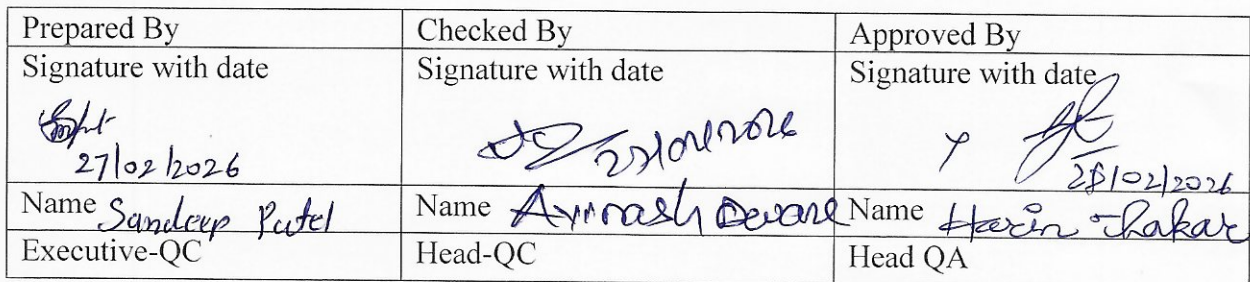 Prepared By Checked By Approved By
Signature with date Signature with date Signature with date
27/02/2026 28/02/2026
Name Sandeep Patel Name Avinash Deware Name Harin Thakar
Executive-QC Head-QC Head QA